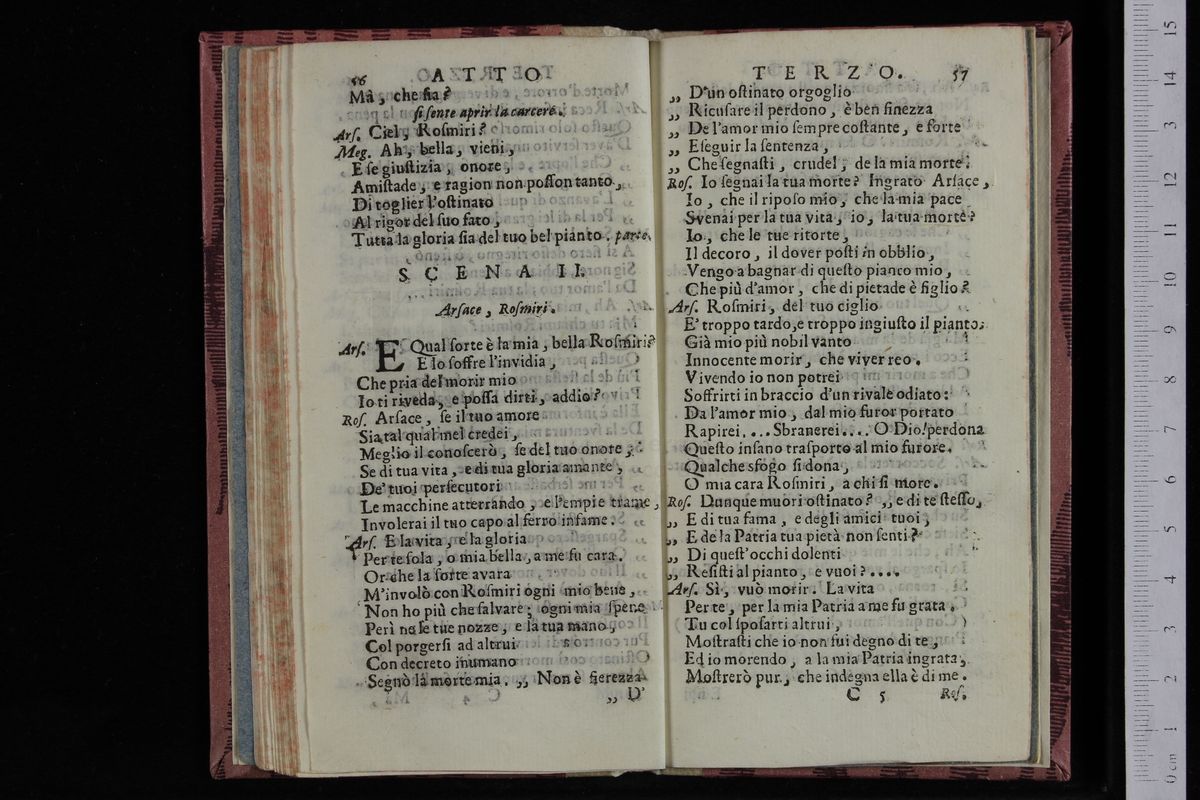 56 ATTO
Mà, che fia?
si sente aprir la carcere.
Ars. Ciel, Rosmiri?
Meg. Ah, bella, vieni,
E se giustizia, onore,
Amistade, e ragion non posson tanto,
Di toglier l'ostinato
Al rigor del suo fato,
Tutta la gloria sia del tuo bel pianto. parte.
SCENA II.
Arsace, Rosmiri.
Ars. E Qual sorte è la mia, bella Rosmiri?
E lo soffre l'invidia,
Che pria del morir mio
Io ti riveda, e possa dirti, addio?
Ros. Arsace, se il tuo amore
Sia tal qual mel credei,
Meglio il conoscerò, se del tuo onore,
Se di tua vita, e di tua gloria amante,
De' tuoi persecutori
Le macchine atterrando, e l'empie trame,
Involerai il tuo capo al ferro infame.
Ars. E la vita, e la gloria
Per te sola, o mia bella, a me fu cara.
Or che la sorte avara
M'involò con Rosmiri ogni mio bene,
Non ho più che salvare; ogni mia spene
Perì ne le tue nozze, e la tua mano,
Col porgersi ad altrui
Con decreto inumano
Segnò la morte mia. ,, Non è fierezza
,, D'
TERZO. 57
,, D'un ostinato orgoglio
,, Ricusare il perdono, è ben finezza
,, De l'amor mio sempre costante, e forte
,, Eseguir la sentenza,
,, Che segnasti, crudel, de la mia morte.
Ros. Io segnai la tua morte? Ingrato Arsace,
Io, che il riposo mio, che la mia pace
Svenai per la tua vita, io, la tua morte?
Io, che le tue ritorte,
Il decoro, il dover posti in obblio,
Vengo a bagnar di questo pianto mio,
Che più d'amor, che di pietade è figlio?
Ars. Rosmiri, del tuo ciglio
E' troppo tardo, e troppo ingiusto il pianto.
Già mio più nobil vanto
Innocente morir, che viver reo.
Vivendo io non potrei
Soffrirti in braccio d'un rivale odiato:
Da l'amor mio, dal mio furor portato
Rapirei.... Sbranerei.... O Dio! perdona
Questo insano trasporto al mio furore.
Qualche sfogo si dona,
O mia cara Rosmiri, a chi si more.
Ros. Dunque muori ostinato? ,, e di te stesso,
,, E di tua fama, e degli amici tuoi,
,, E de la Patria tua pietà non senti?
,, Di quest'occhi dolenti
,, Resisti al pianto, e vuoi?....
Ars. Sì, vuò morir. La vita
Per te, per la mia Patria a me fu grata.
Tu col sposarti altrui,
Mostrasti che io non fui degno di te,
Ed io morendo, a la mia Patria ingrata,
Mostrerò pur, che indegna ella è di me.
C 5 Ros.